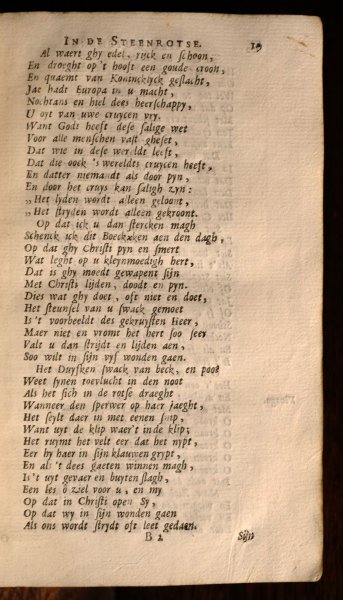 IN DE STEENROTSE. 19
Al waert ghy edel, ryck en schoon,
En droeght op't hooft een goude croon,
En quaemt van Konincklyck geslacht,
Jae hadt Europa in u macht,
Nochtans en hiel dees heerschappy,
U oyt van uwe cruycen vry.
Want Godt heeft dese salige wet
Voor alle menschen vast gheset,
Dat wie in dese wereldt leeft,
Dat die oock 's wereldts cruycen heeft,
En datter niemandt als door pyn,
En door het cruys kan saligh zyn:
„Het lyden wordt alleen geloont,
„Het stryden wordt alleen gekroont.
Op dat ick u dan stercken magh
Schenck ick dit Boecksken aen den dagh,
Op dat ghy Christi pyn en smert
Wat leght op u kleynmoedigh hert,
Dat is ghy moedt gewapent sijn
Met Christi lijden, doodt en pyn.
Dies wat ghy doet, oft niet en doet,
Het steunsel van u swack gemoet
Is't voorbeeldt des gekruysten Heer,
Maer niet en vromt het hert soo seer
Valt u dan strijdt en lijden aen,
Soo wilt in sijn vyf wonden gaen.
Het Duyfken swack van beck, en poot
Weet synen toevlucht in den noot
Als het sich in de rotse draeght
Wanneer den sperwer op haer jaeght,
Het seylt daer in met eenen snip,
Want uyt de klip waer't inde klip;
Het ruymt het velt eer dat het nypt,
Eer hy haer in sijn klauwen grypt,
En als 't dees gaeten winnen magh,
Is't uyt gevaer en buyten slagh,
Een les ô ziel voor u, en my
Op dat in Christi open Sy,
Op dat wy in sijn wonden gaen
Als ons wordt strydt oft leet gedaen.
B 2 Sijn